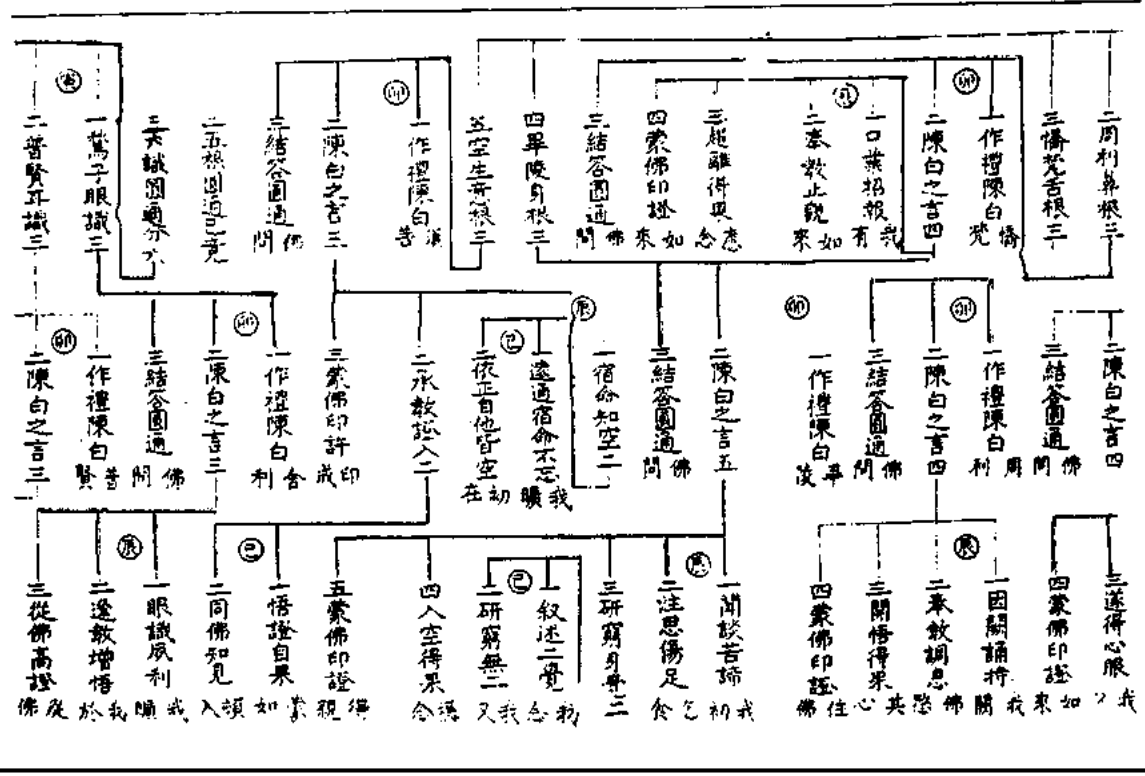 二周利鼻根三
三憍梵舌根三
卯
一作禮陳白 憍梵
二陳白之言四
辰
一口業招報 我有
二奉教止觀 如來
三超離得果 應念
四蒙佛印證 如來
三結答圓通 佛問
四畢陵身根三
五空生意根三
卯
一作禮陳白 須菩
二陳白之言三
三結答圓通 佛問
二五根圓通已竟
三六識圓通分六
寅
一鶖子眼識三
二普賢耳識三
二陳白之言四
三結答圓通 佛問
卯
一作禮陳白 周利
二陳白之言四
三結答圓通 佛問
卯
一作禮陳白 畢陵
二陳白之言五
三結答圓通 佛問
辰
一宿命知空二
巳
一遠通宿命不忘 我曠
二依正自他皆空 初在
二承教證入二
三蒙佛印許 印成
卯
一作禮陳白 舍利
二陳白之言三
三結答圓通 佛問
卯
一作禮陳白 普賢
二陳白之言三
三遂得心脫 我又
四蒙佛印證 如來
辰
一因闕誦持 我闕
二奉教調息 佛愍
三開悟得果 其心
四蒙佛印證 佛住
辰
一聞談苦諦 我初
二注思傷足 乞食
三研窮身覺二
巳
一叙述二覺 我念
二研窮無二 又我
四入空得果 攝念
五蒙佛印證 得親
巳
一悟證自果 蒙如
二同佛知見 頓入
辰
一眼識夙利 我曠
二逢教增悟 我於
三從佛高證 從佛